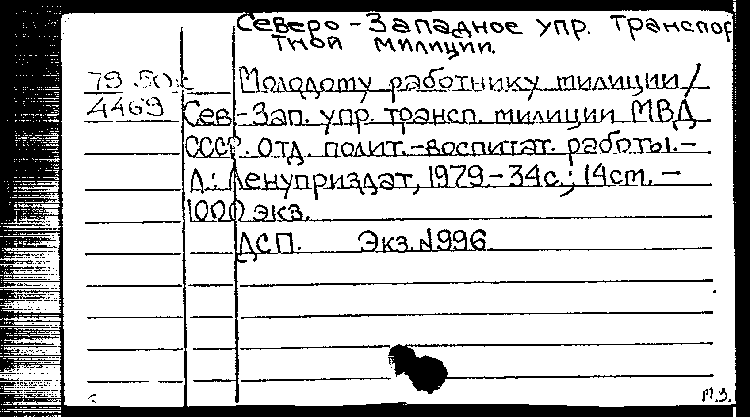 Северо-Западное упр. Транспор
тной милиции.
79 50c Молодому работнику милиции/
4469 Сев-Зап. упр. трансп. милиции МВД
СССР. Отд. полит.-воспитат. работы.-
Л.: Ленуприздат, 1979.-34с.; 14см. -
1000 экз.
ДСП. Экз.№996
М.З.